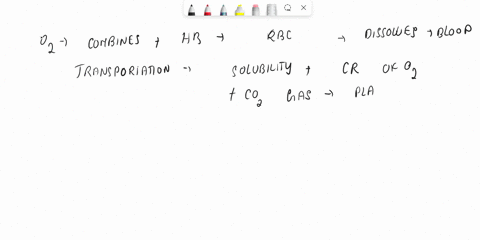 O2 → COMBINES + HB → RBC → DISSOLVES → BLOOD
TRANSPORIATION → SOLUBILITY + CR OF O2
+ CO2 GAS → PLA